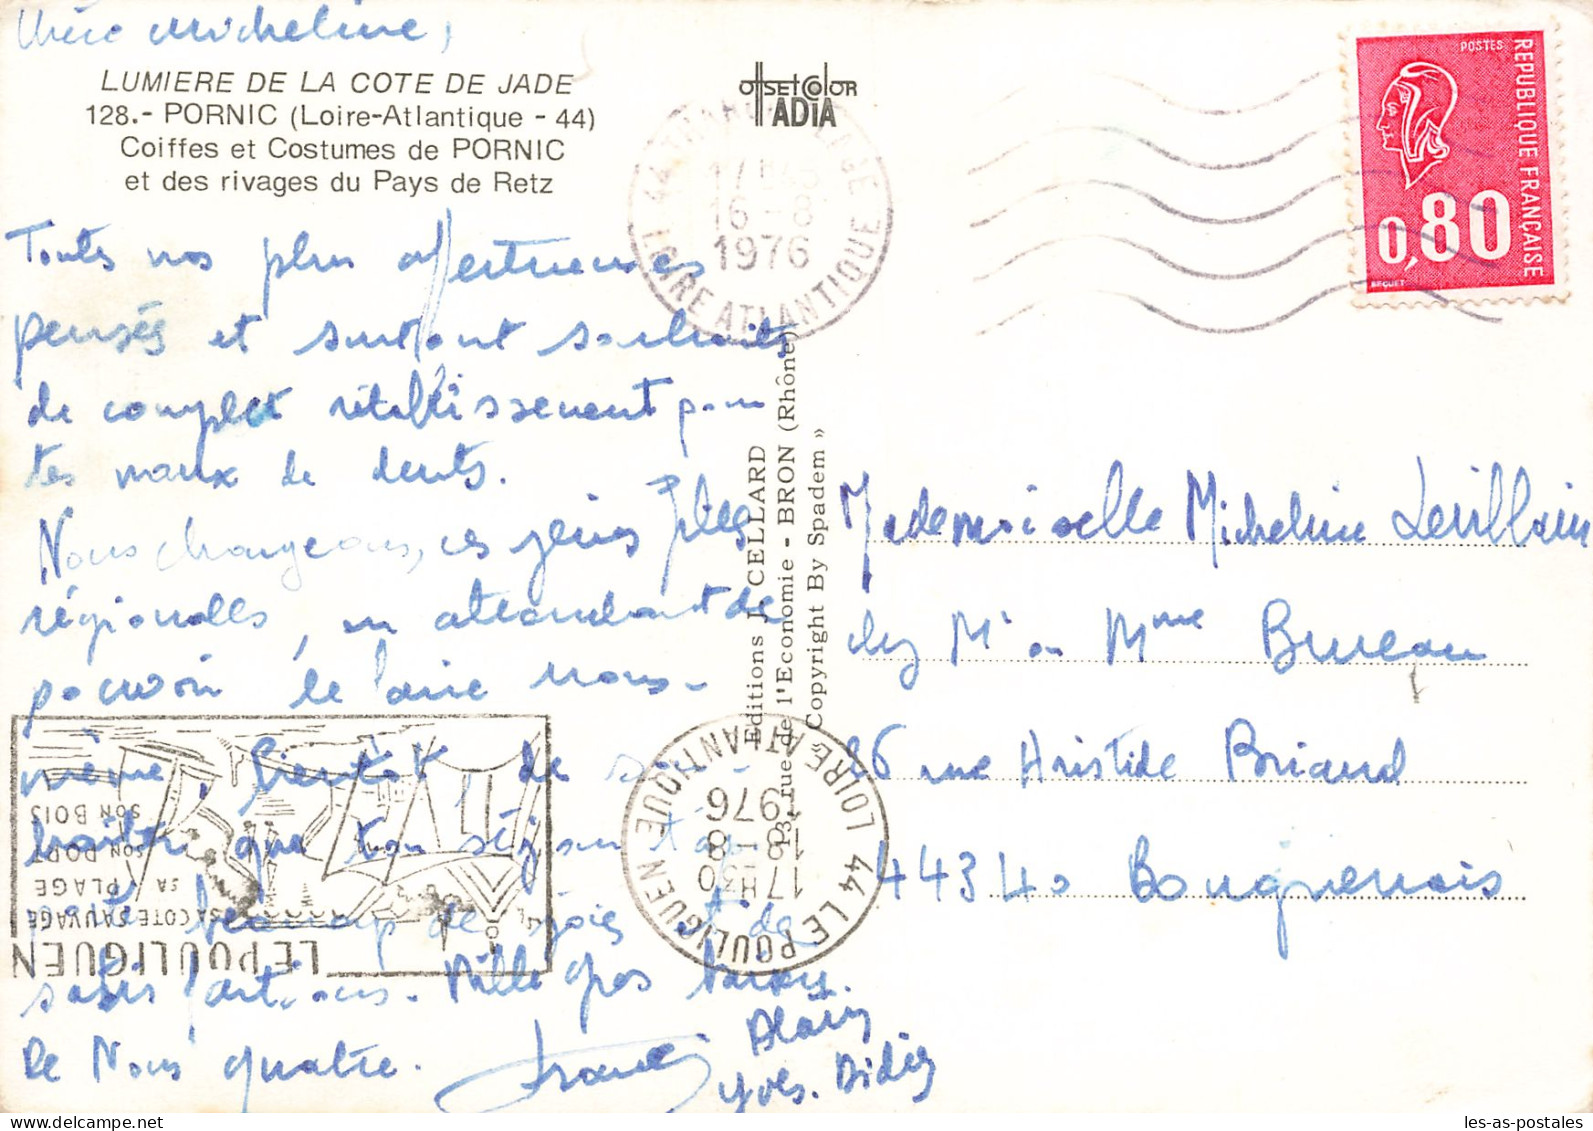 Chère Micheline,
LUMIERE DE LA COTE DE JADE
128.- PORNIC (Loire-Atlantique - 44)
Coiffes et Costumes de PORNIC
et des rivages du Pays de Retz
Toutes nos plus affectueuses
pensées et surtout souhaits
de complet rétablissement pour
tes maux de dents.
Nous chargeons, ces jeunes filles
régionales, en attendant de
pouvoir le faire nous-
même, bientôt, de sou-
haiter que ton séjour t'ap-
beaucoup de joies et de
satisfactions. Mille gros baisers.
De Nous quatre.
Francis
Alain
Yves. Didier
OFFSETCOLOR
ADIA
17H45
16-8
1976
LOIRE ATLANTIQUE
Editions J. CELLARD
13, rue de l'Economie - BRON (Rhône)
« Copyright By Spadem »
44 LE POULIGUEN
LOIRE ATLANTIQUE
17H30
18-8
1976
LE POULIGUEN
SA COTE SAUVAGE
SA PLAGE
SON PORT
SON BOIS
POSTES
REPUBLIQUE FRANÇAISE
0,80
BEQUET
Mademoiselle Micheline Levillain
chez Mr ou Mme Bureau
26 rue Aristide Briand
44340 Bouguenais
les-as-postales